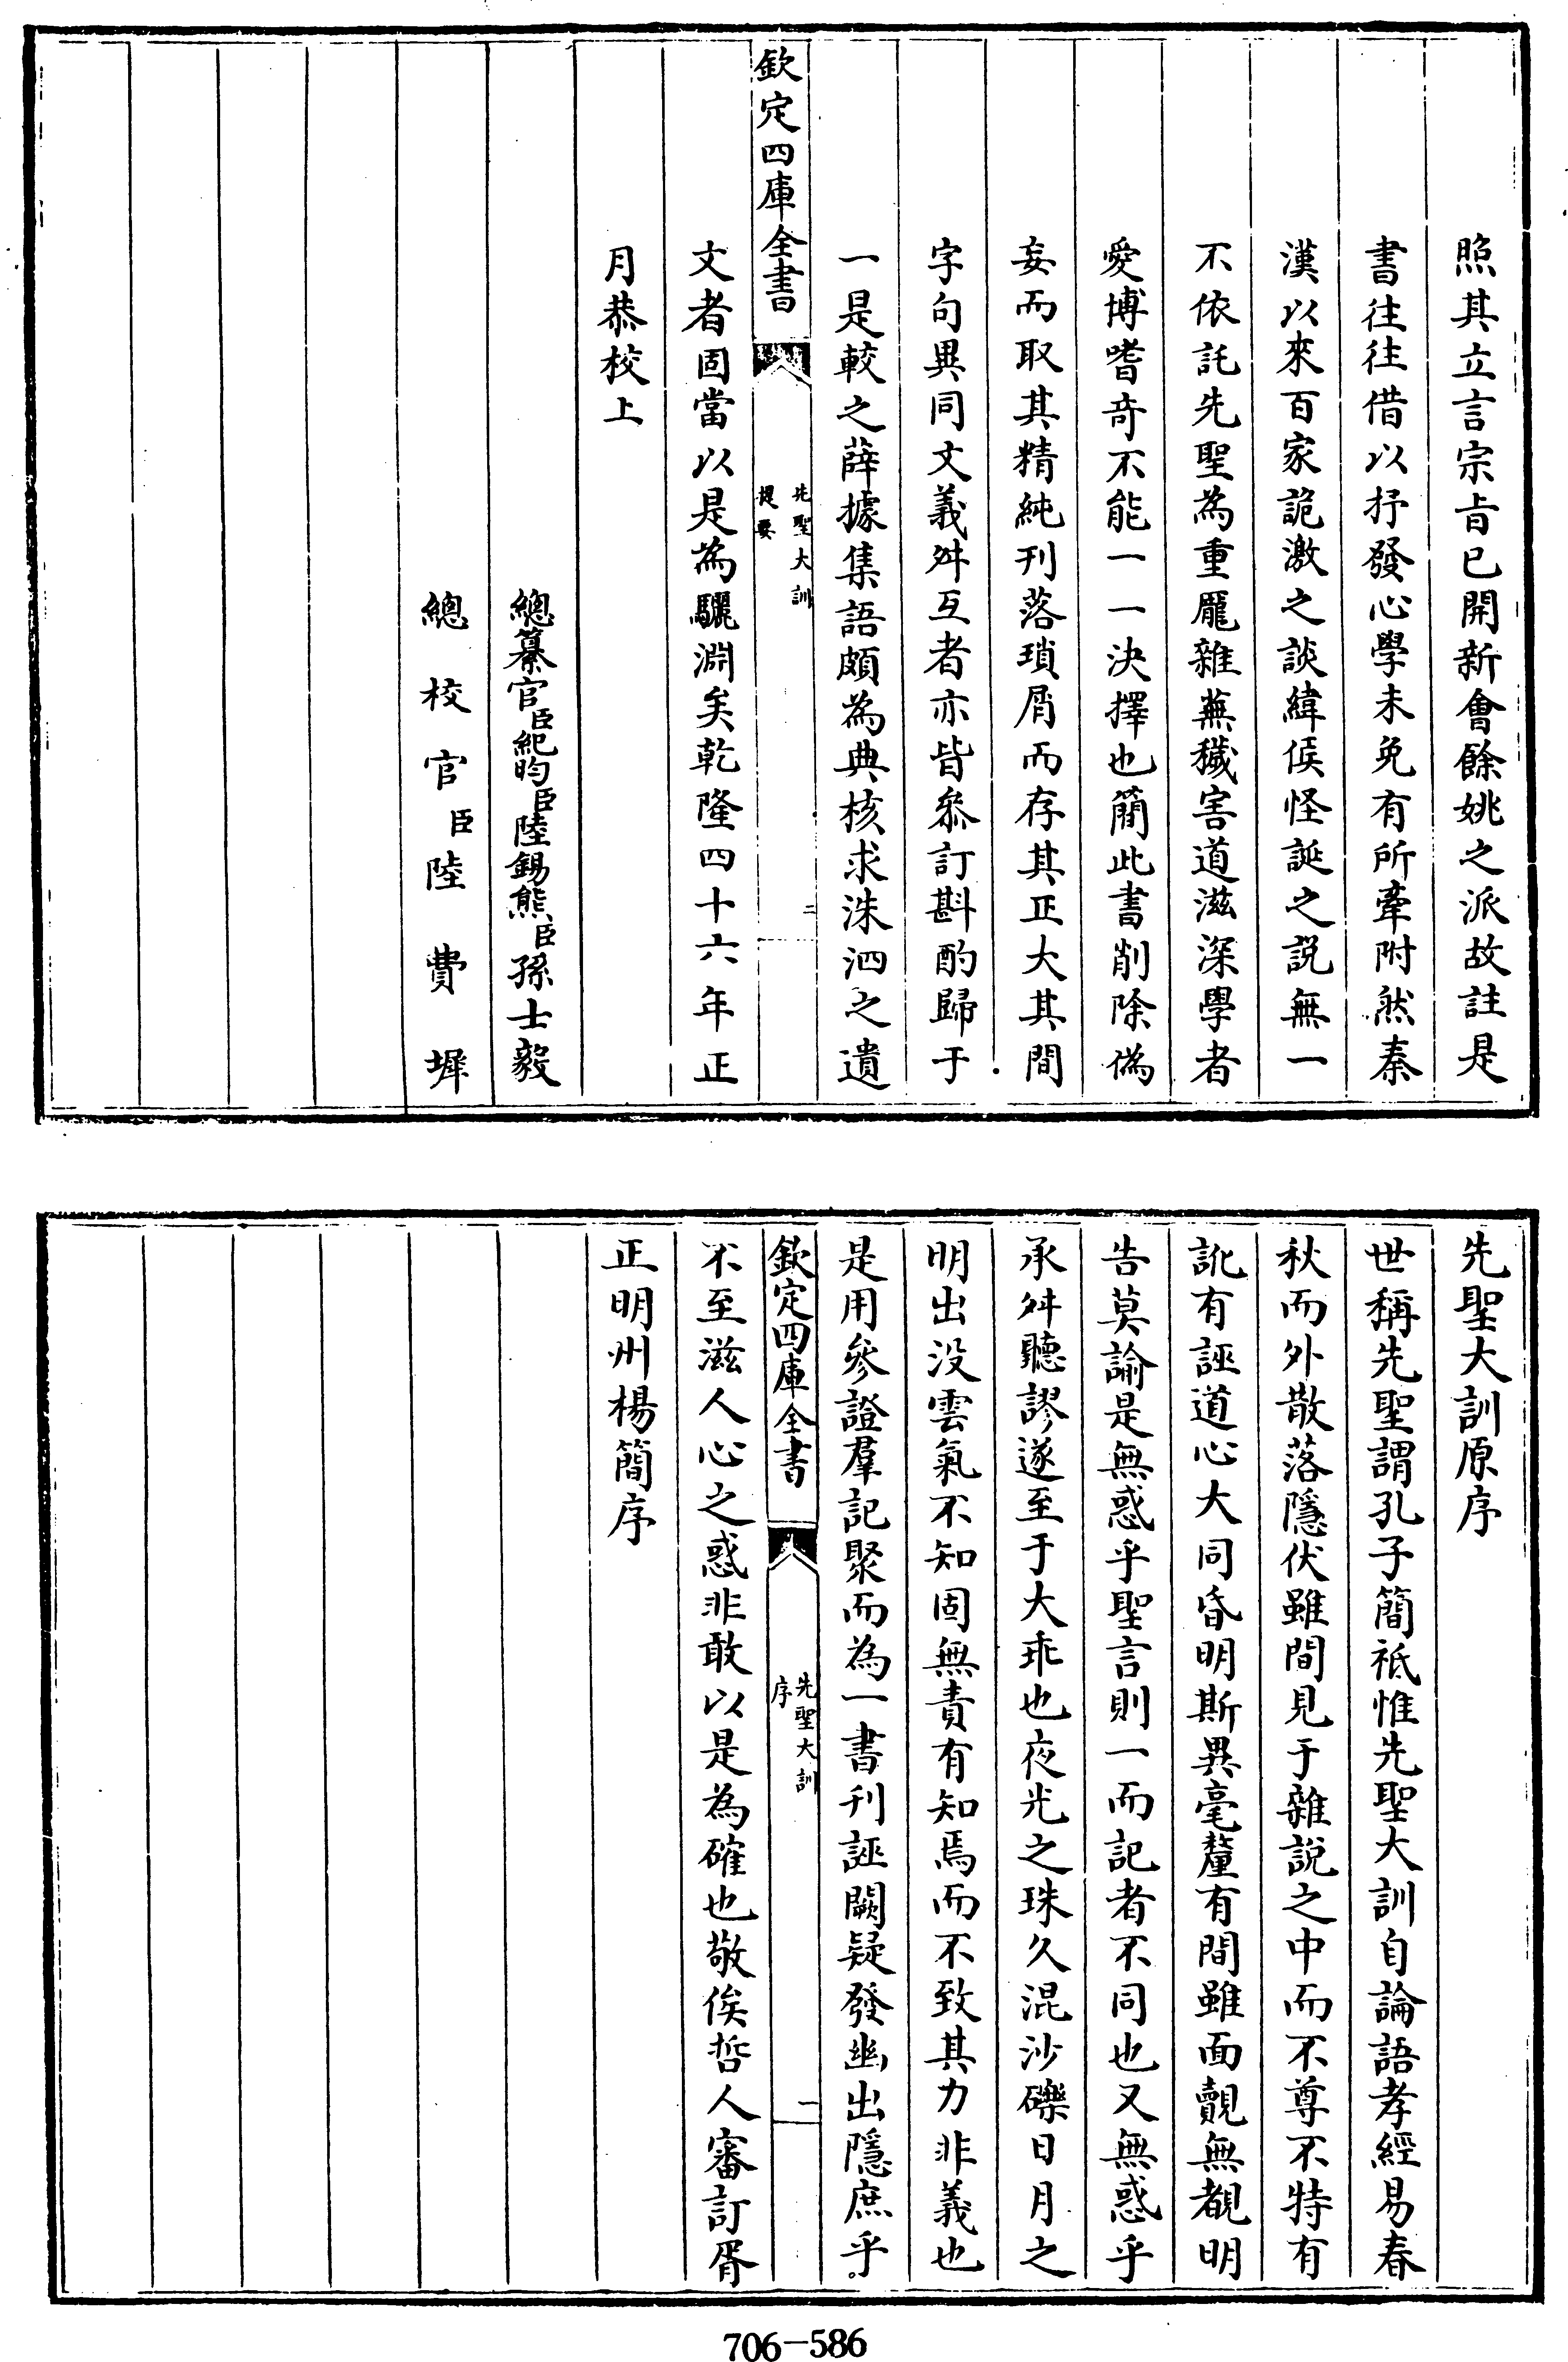 照其立言宗㫖已開新會餘姚之派故註是
書往往借以抒發心學未免有所牽附然秦
漢以來百家詭激之談緯𠉀怪誕之説無一
不依託先聖為重龎雜蕪穢害道滋深學者
愛博嗜竒不能一一決擇也簡此書削除偽
妄而取其精純刊落瑣屑而存其正大其間
字句異同文義舛互者亦皆叅訂斟酌歸于
一是較之薛據集語頗為典核求洙泗之遺
欽定四庫全書
先聖大訓
提要
二
文者固當以是為驪淵矣乾隆四十六年正
月恭校上
總纂官臣紀昀臣陸錫熊臣孫士毅
總校官臣陸費墀
先聖大訓原序
世稱先聖謂孔子簡祗惟先聖大訓自論語孝經易春
秋而外散落隱伏雖間見于雜說之中而不尊不特有
訛有誣道心大同昏明斯異毫釐有間雖面覿無覩明
告莫諭是無惑乎聖言則一而記者不同也又無惑乎
承舛聽謬遂至于大乖也夜光之珠久混沙礫日月之
明出没雲氣不知固無責有知焉而不致其力非義也
是用參證羣記聚而為一書刊誣闕疑發幽出隱庶乎
欽定四庫全書
先聖大訓
序
一
不至滋人心之惑非敢以是為確也敬俟哲人審訂胥
正明州楊簡序
706-586